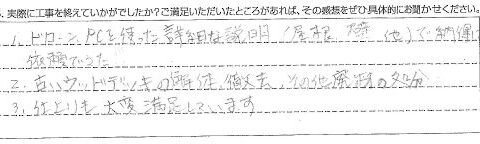 実際に工事を終えていかがでしたか?ご満足いただいたところがあれば、その感想をぜひ具体的にお聞かせください。
1. ドローン、PCを使った詳細な説明(屋根、壁、他)で納得し
依頼できた
2. 古いウッドデッキの解体、撤去、その他廃材の処分
3. 仕上りも大変満足しています